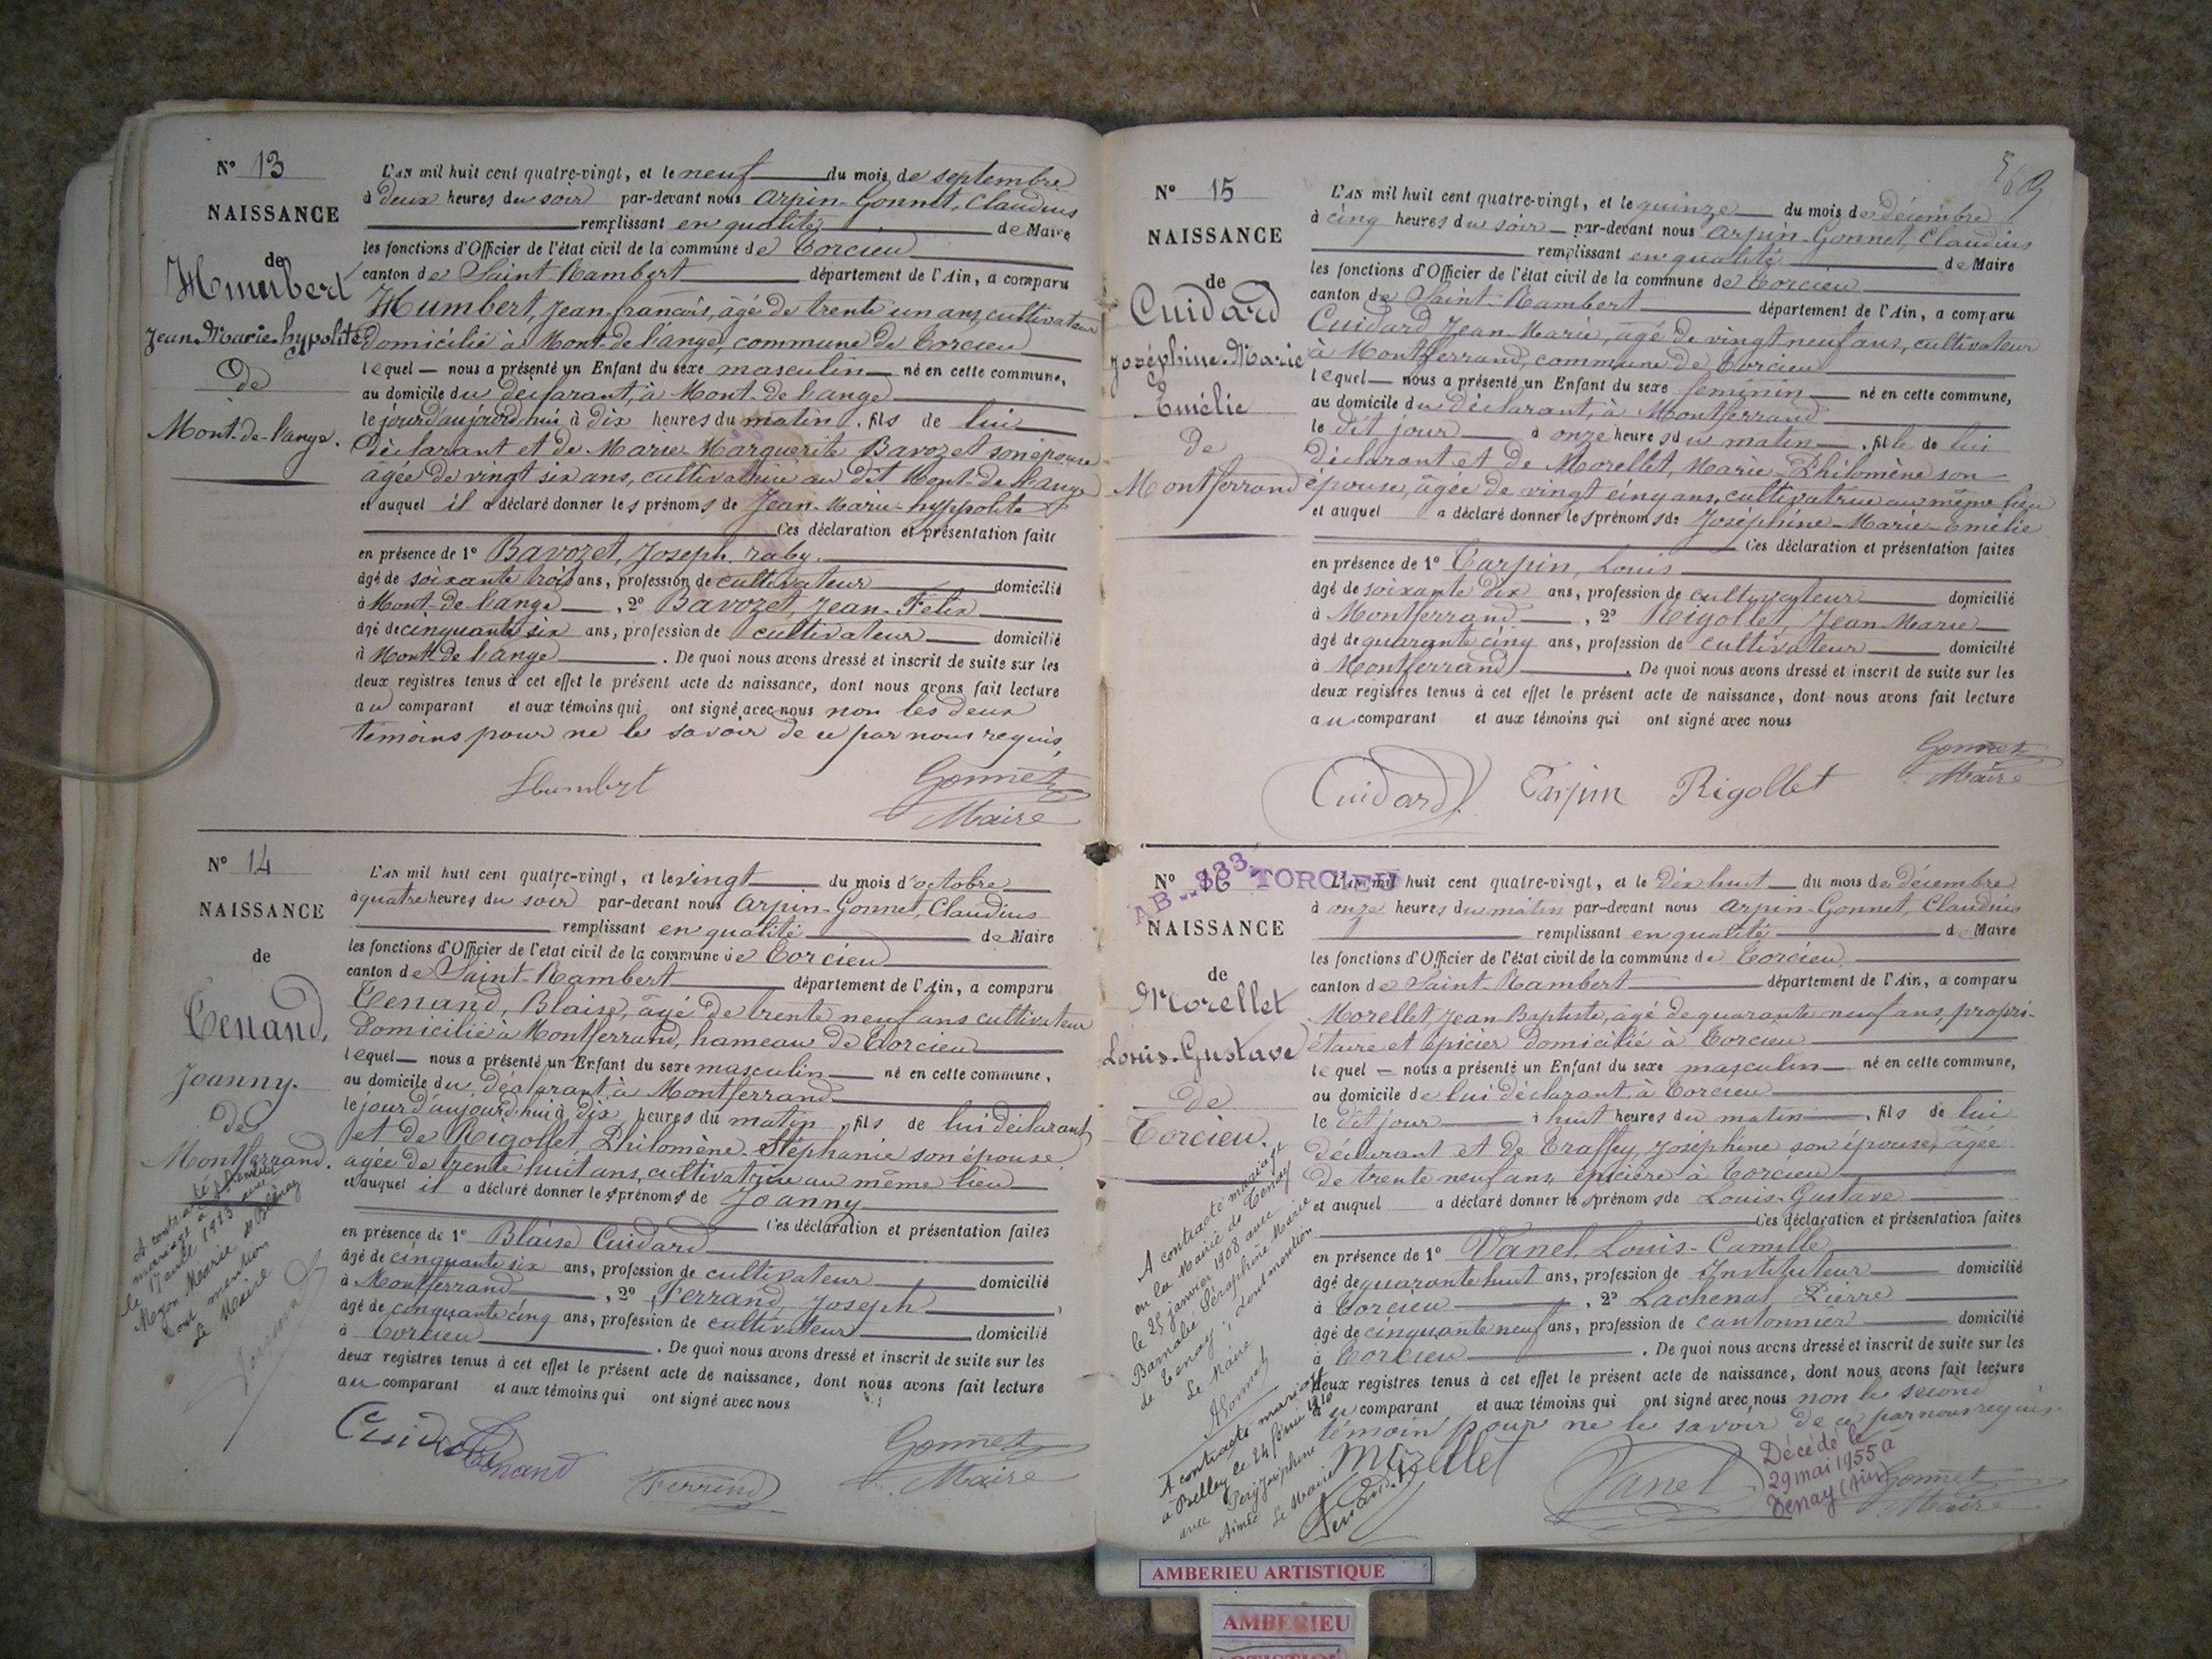 N° 13
NAISSANCE
de
Humbert
Jean-Marie-hypolite
De
Mont-de-lange.
L'AN mil huit cent quatre-vingt, et le neuf du mois de septembre
à deux heures du soir par-devant nous Arpin-Gonnet, Claudius
remplissant en qualité de Maire
les fonctions d'Officier de l'état civil de la commune de Torcieu
canton de Saint-Rambert département de l'Ain, a comparu
Humbert, Jean-françois, âgé de trente un ans, cultivateur
domicilié à Mont-de-lange, commune de Torcieu
lequel nous a présenté un Enfant du sexe masculin né en cette commune,
au domicile du déclarant, à Mont-de-lange
le jourd'aujourd'hui à dix heures du matin, fils de lui
déclarant et de Marie-Marguerite Bavozet son épouse
âgée de vingt six ans, cultivatrice au dit Mont-de-lange
et auquel il a déclaré donner les prénoms de Jean-Marie-hyppolite
Ces déclaration et présentation faite
en présence de 1° Bavozet, Joseph, raby.
âgé de soixante trois ans, profession de cultivateur domicilié
à Mont-de-lange, 2° Bavozet, Jean-Félix
âgé de cinquante six ans, profession de cultivateur domicilié
à Mont-de-lange. De quoi nous avons dressé et inscrit de suite sur les
deux registres tenus à cet effet le présent acte de naissance, dont nous avons fait lecture
au comparant et aux témoins qui ont signé avec nous non les deux
témoins pour ne le savoir de ce par nous requis,
Humbert
Gonnet
Maire
N° 14
NAISSANCE
de
Tenand,
Joanny.
de
Montferrand.
A contracté
mariage à
le 17 août 1913 avec
Marie
dont mention
Le Maire
L'AN mil huit cent quatre-vingt, et le vingt du mois d'octobre
à quatre heures du soir par-devant nous Arpin-Gonnet, Claudius
remplissant en qualité de Maire
les fonctions d'Officier de l'état civil de la commune de Torcieu
canton de Saint-Rambert département de l'Ain, a comparu
Tenand, Blaise, âgé de trente neuf ans cultivateur
domicilié à Montferrand, hameau de Torcieu
lequel nous a présenté un Enfant du sexe masculin né en cette commune,
au domicile du déclarant, à Montferrand
le jour d'aujourd'hui à dix heures du matin, fils de lui déclarant
et de Rigollet, Philomène-Stéphanie son épouse
âgée de trente huit ans, cultivatrice au même lieu
et auquel il a déclaré donner les prénoms de Joanny
Ces déclaration et présentation faites
en présence de 1° Blaise Cuidard
âgé de cinquante six ans, profession de cultivateur domicilié
à Montferrand, 2° Ferrand, Joseph,
âgé de cinquante cinq ans, profession de cultivateur domicilié
à Torcieu. De quoi nous avons dressé et inscrit de suite sur les
deux registres tenus à cet effet le présent acte de naissance, dont nous avons fait lecture
au comparant et aux témoins qui ont signé avec nous
Cuidard Tenand
Ferrand
Gonnet
Maire
N° 15
NAISSANCE
de
Cuidard
Joséphine-Marie
Emélie
de
Montferrand
L'AN mil huit cent quatre-vingt, et le quinze du mois de décembre
à cinq heures du soir par-devant nous Arpin-Gonnet, Claudius
remplissant en qualité de Maire
les fonctions d'Officier de l'état civil de la commune de Torcieu
canton de Saint-Rambert département de l'Ain, a comparu
Cuidard, Jean-Marie, âgé de vingt neuf ans, cultivateur
à Montferrand, commune de Torcieu
lequel nous a présenté un Enfant du sexe féminin né en cette commune,
au domicile du déclarant, à Montferrand
le dit jour à onze heures du matin, fille de lui
déclarant et de Morellet, Marie-Philomène son
épouse, âgée de vingt cinq ans, cultivatrice au même lieu
et auquel a déclaré donner les prénoms de Joséphine-Marie-Emélie
Ces déclaration et présentation faites
en présence de 1° Tarpin, Louis
âgé de soixante dix ans, profession de cultivateur domicilié
à Montferrand, 2° Rigollet, Jean-Marie
âgé de quarante cinq ans, profession de cultivateur domicilié
à Montferrand. De quoi nous avons dressé et inscrit de suite sur les
deux registres tenus à cet effet le présent acte de naissance, dont nous avons fait lecture
au comparant et aux témoins qui ont signé avec nous
Cuidard Tarpin Rigollet
Gonnet
Maire
N° 16
AB..883. TORCIEU
NAISSANCE
de
Morellet
Louis-Gustave
de
Torcieu.
A contracté mariage
en la Mairie de Tenay
le 25 janvier 1908 avec
Barnabé Séraphine Marie
de Tenay; dont mention
Le Maire
A contracté mariage
à Belley le 24 février 1910
avec
Aimée
Le Maire
L'AN mil huit cent quatre-vingt, et le dix huit du mois de décembre
à onze heures du matin par-devant nous Arpin-Gonnet, Claudius
remplissant en qualité de Maire
les fonctions d'Officier de l'état civil de la commune de Torcieu
canton de Saint-Rambert département de l'Ain, a comparu
Morellet, Jean Baptiste, âgé de quarante neuf ans, propri-
étaire et épicier domicilié à Torcieu
lequel nous a présenté un Enfant du sexe masculin né en cette commune,
au domicile de lui déclarant, à Torcieu
le dit jour à huit heures du matin, fils de lui
déclarant et de Traffey, Joséphine son épouse, âgée
de trente neuf ans, épicière à Torcieu
et auquel a déclaré donner les prénoms de Louis-Gustave
Ces déclaration et présentation faites
en présence de 1° Vanel Louis-Camille
âgé de quarante huit ans, profession de Instituteur domicilié
à Torcieu, 2° Lachenal, Pierre
âgé de cinquante neuf ans, profession de cantonnier domicilié
à Torcieu. De quoi nous avons dressé et inscrit de suite sur les
deux registres tenus à cet effet le présent acte de naissance, dont nous avons fait lecture
au comparant et aux témoins qui ont signé avec nous non le second
témoin pour ne le savoir de ce par nous requis
Morellet
Vanel
Décédé le
29 mai 1955 à
Tenay (Ain)
Gonnet
Maire
AMBERIEU ARTISTIQUE
AMBERIEU
ARTISTIQUE